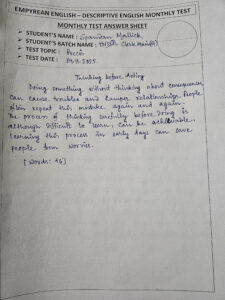 EMPYREAN ENGLISH – DESCRIPTIVE ENGLISH MONTHLY TEST
MONTHLY TEST ANSWER SHEET
➢ STUDENT'S NAME : Mallick
➢ STUDENT'S BATCH NAME : Clerk
➢ TEST TOPIC : Precis
➢ TEST DATE :
Thinking before Acting
Doing something without thinking about consequences
can cause troubles and hamper relationships. People
often repeat this mistake again and again.
The process of thinking carefully before doing is
although difficult to learn, can be achievable.
Learning this process in early days can save
people from worries.
[Words: 46]